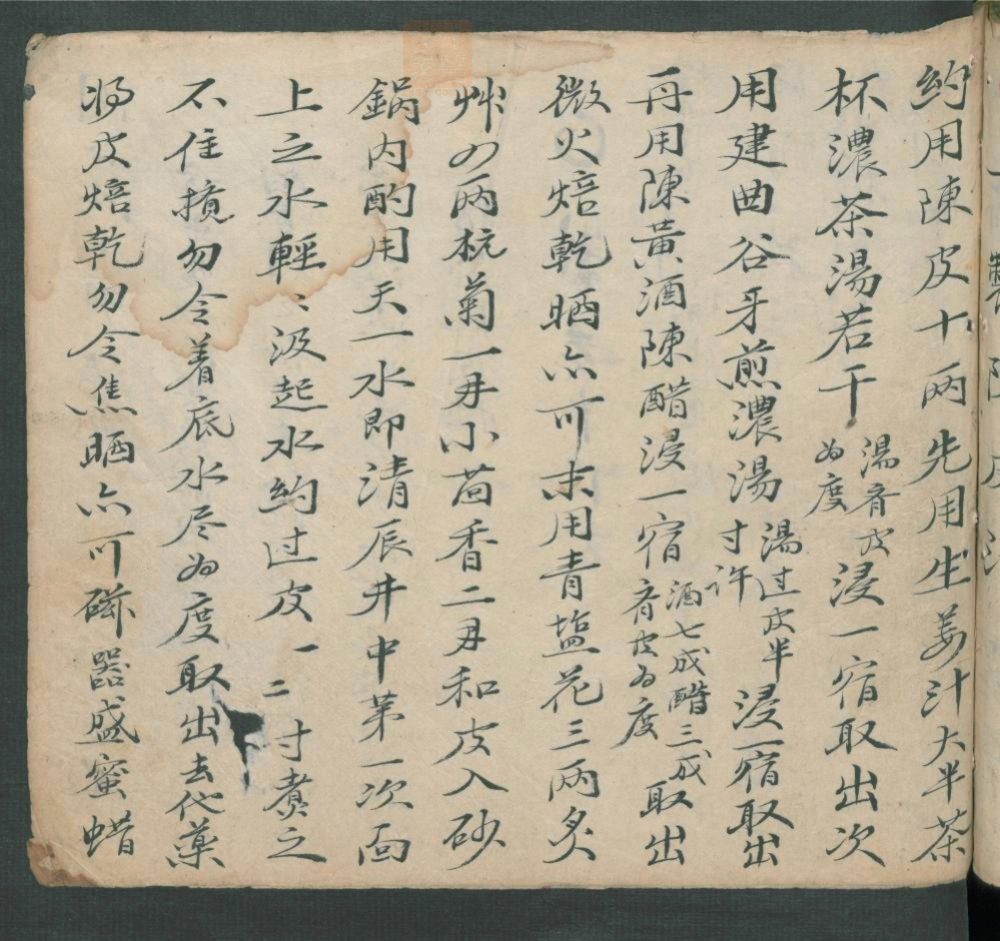 約用陳皮十兩先用生姜汁大半茶
杯濃茶湯若干湯脊皮為度浸一宿取出次
用建曲谷牙煎濃湯湯过皮半寸許浸一宿取出
再用陳黃酒陳醋浸一宿酒七成醋三成脊皮為度取出
微火焙乾晒亦可末用青塩花三兩炙
艸四兩杭菊一刄小茴香二刄和皮入砂
鍋内酌用天一水即清辰井中第一次面
上之水輕〻汲起水約过皮一二寸煑之
不住攪勿令着底水尽為度取出去代藥
将皮焙乾勿令焦晒亦可磁器盛蜜蜡